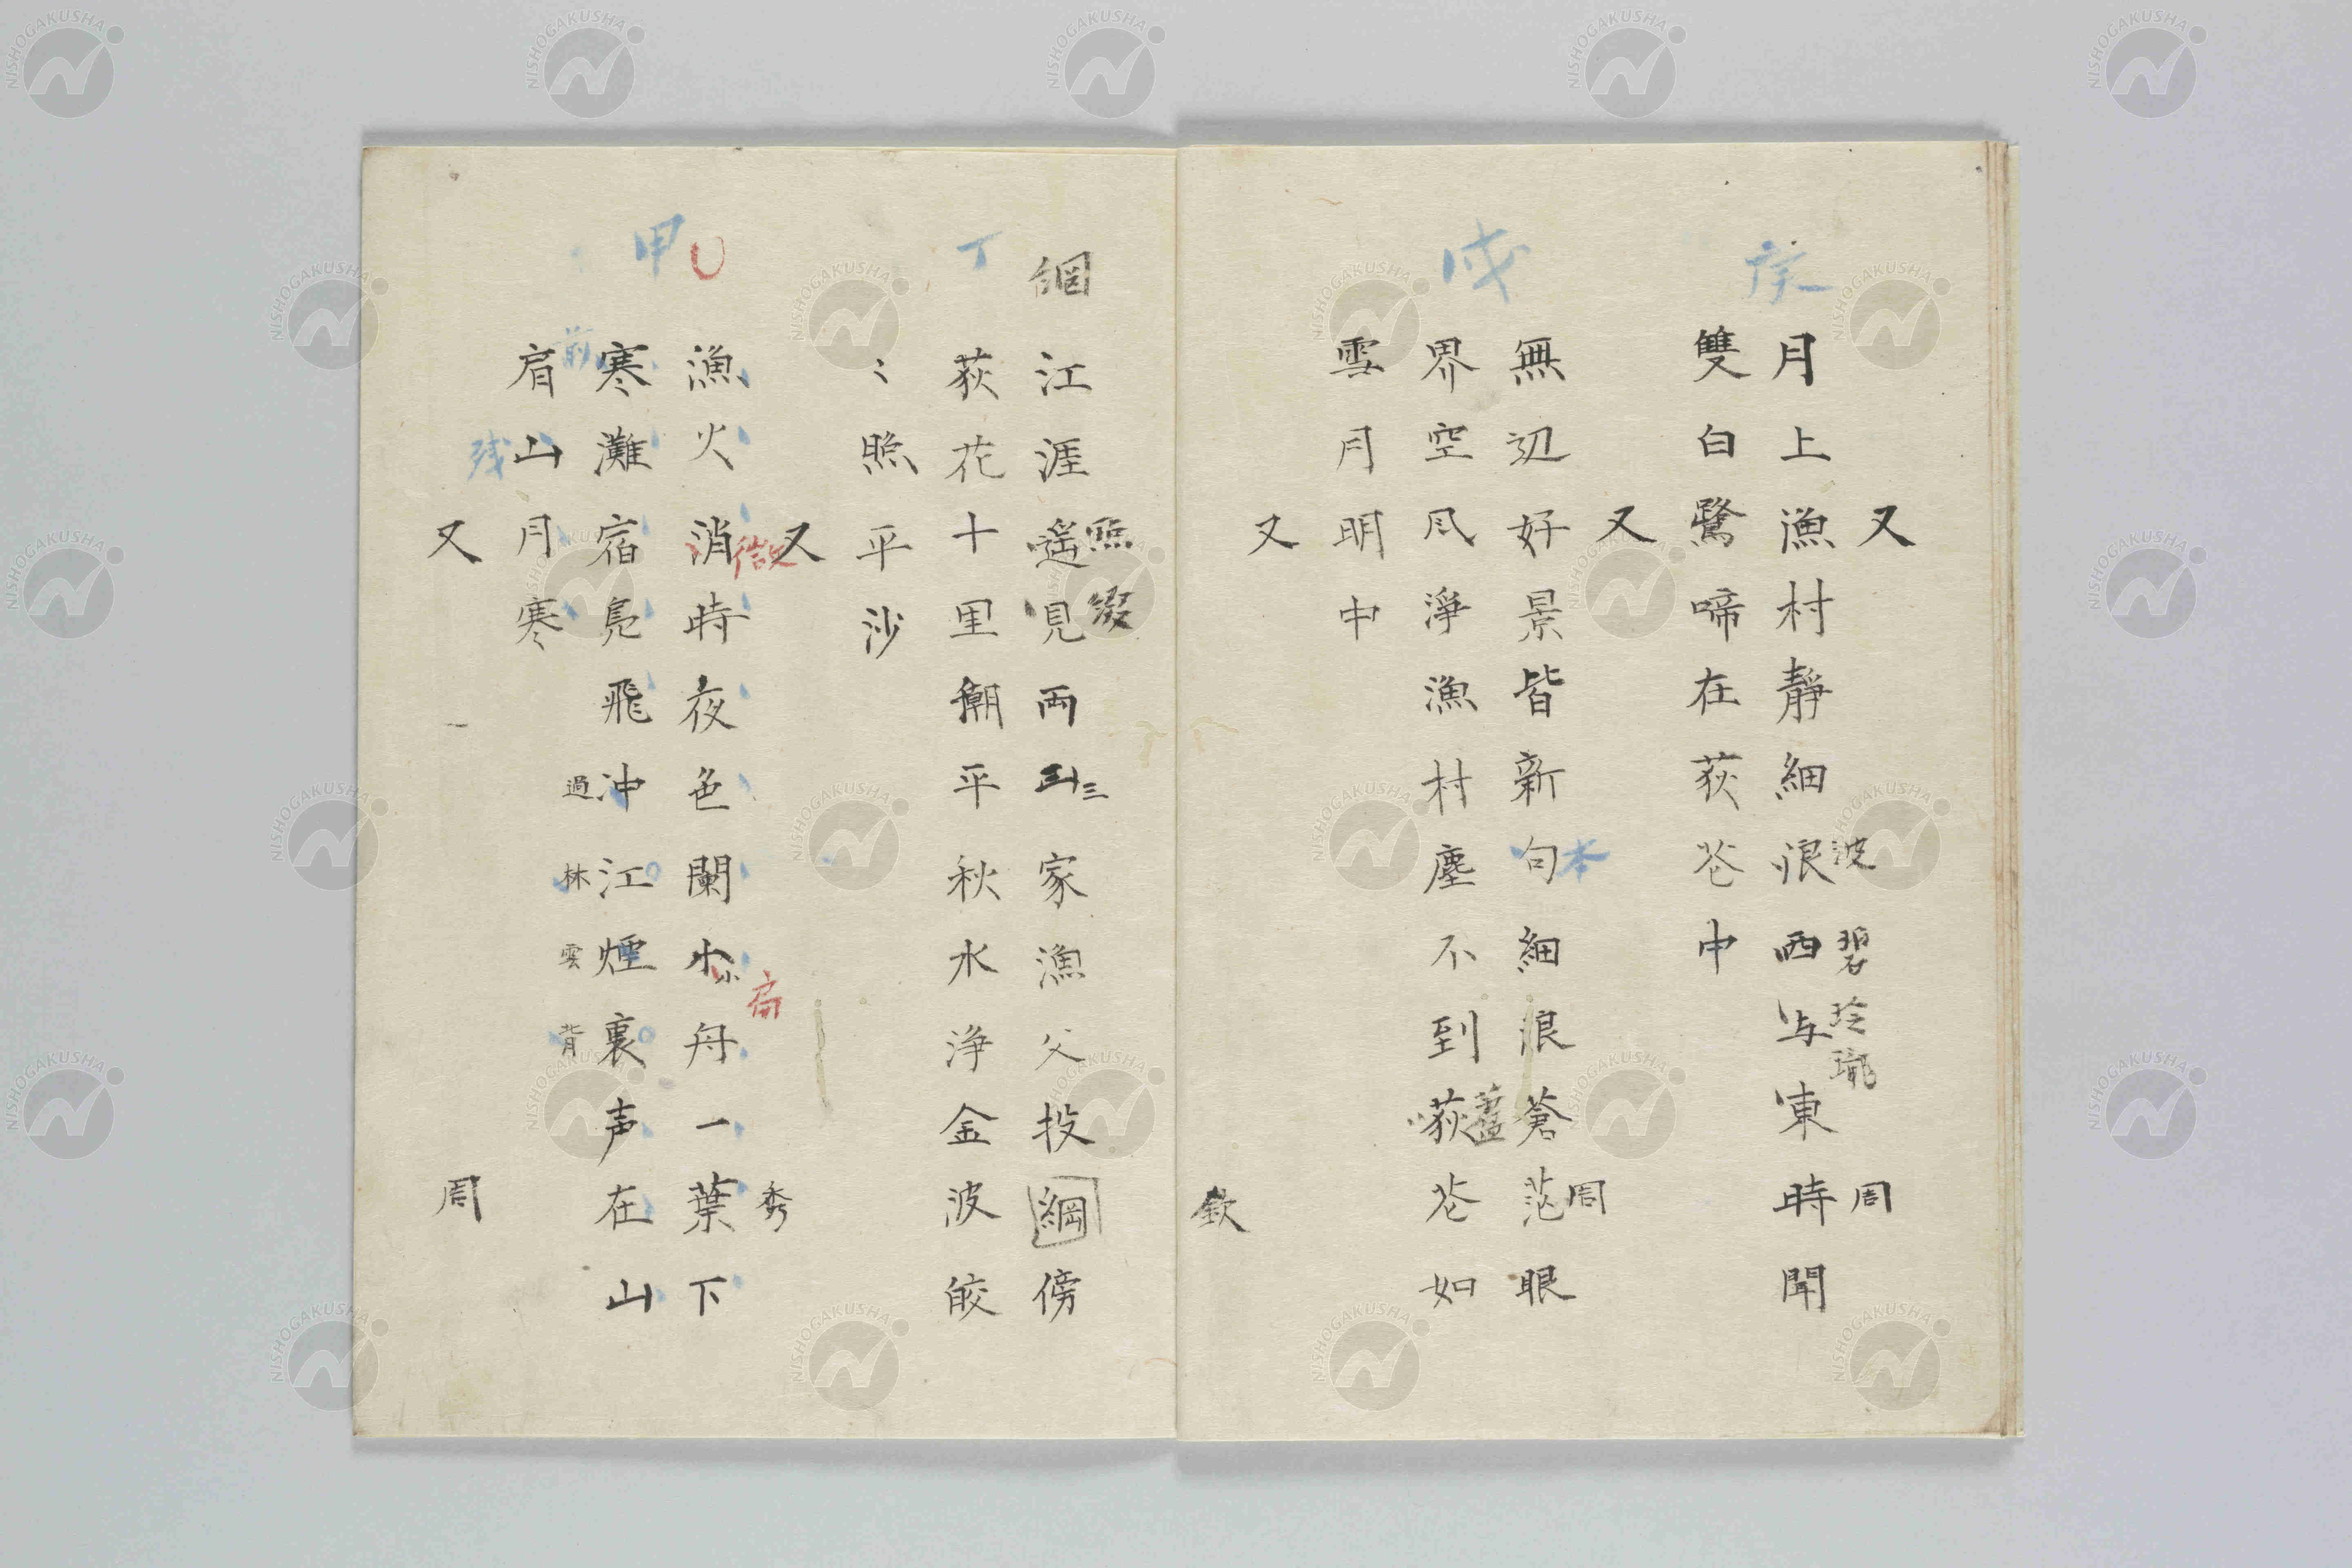 又　周
月上漁村靜細浪西与東時聞
波
碧
玲
瓏
雙白鷺啼在荻花中
又　周
無辺好景皆新句細浪蒼茫眼
本
界空風淨漁村塵不到荻花如
蘆
雪月明中
又　欽
戊
網
江涯遥見両三家漁父投網傍
照
綴
三
丁
荻花十里潮平秋水浄金波皎
〻照平沙
又　秀
甲
漁火消時夜色闌小舟一葉下
微
小
扁
寒灘宿鳧飛冲江煙裏声在山
前
過
林
雲
背
肩山月寒
残
又　周
NISHOGAKUSHA